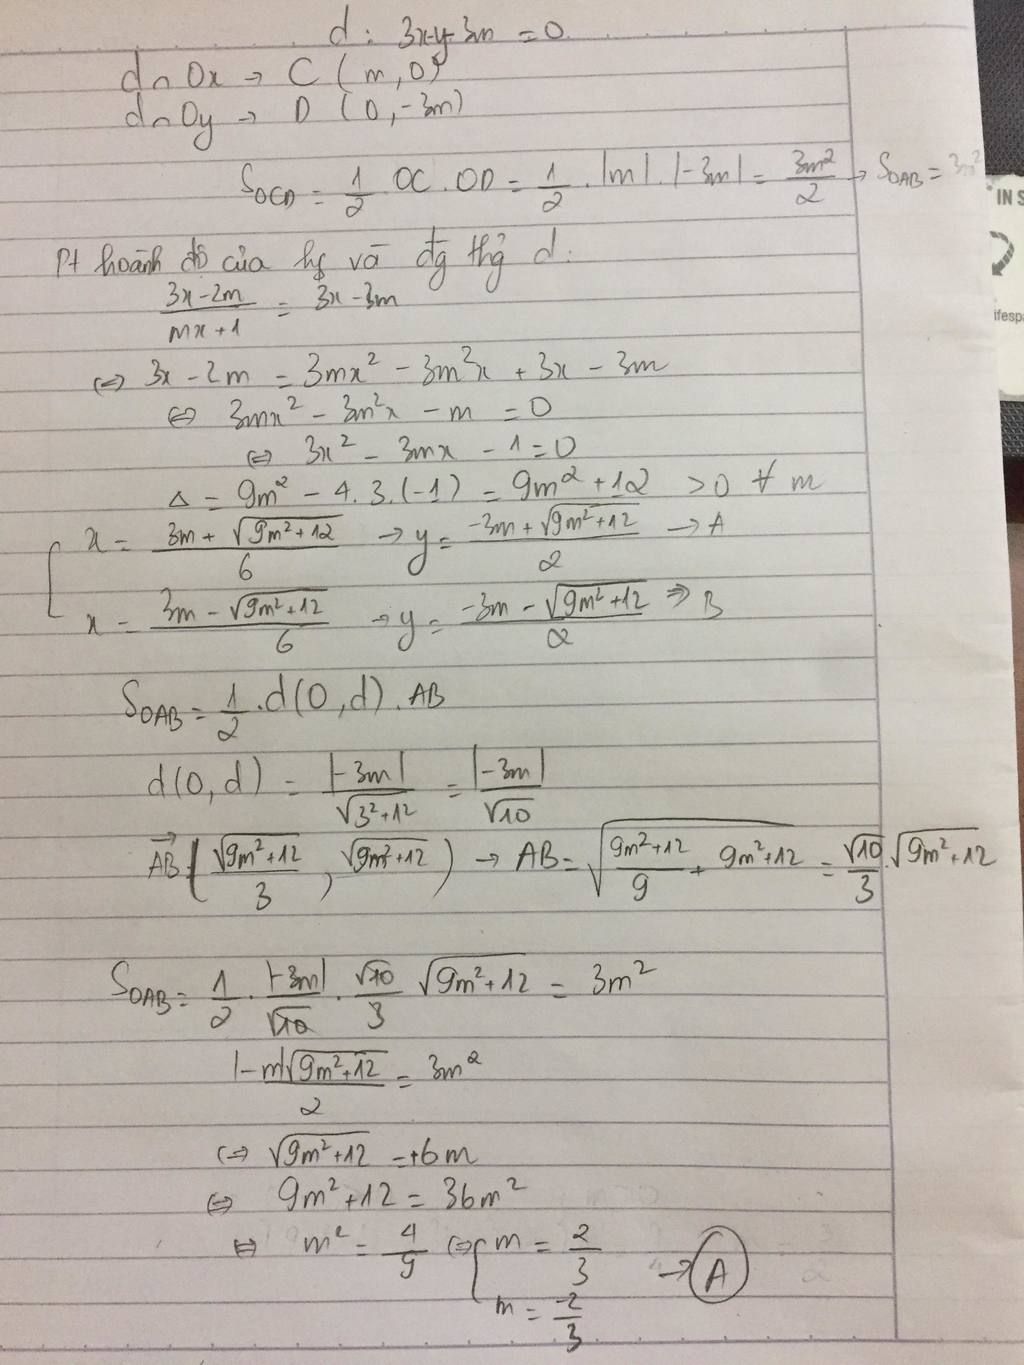 d: 3x-y-3m = 0
d∩Ox → C (m,0)
d∩Oy → D (0,-3m)
S_OCD = 1/2 . OC . OD = 1/2 . |m| . |-3m| = 3m²/2 → S_OAB = 3m²
IN S
ifespa
Pt hoành độ của hs và đg thg d:
(3x-2m)/(mx+1) = 3x-3m
⇔ 3x-2m = 3mx² - 3m²x + 3x - 3m
⇔ 3mx² - 3m²x - m = 0
⇔ 3x² - 3mx - 1 = 0
Δ = 9m² - 4.3.(-1) = 9m²+12 > 0 ∀ m
[ x = (3m + √(9m²+12))/6 → y = (-3m + √(9m²+12))/2 → A
x = (3m - √(9m²+12))/6 → y = (-3m - √(9m²+12))/2 ⇒ B
S_OAB = 1/2 . d(O,d) . AB
d(O,d) = |-3m|/√(3²+12) = |-3m|/√10
→AB (√(9m²+12)/3 , √(9m²+12)) → AB = √((9m²+12)/9 + 9m²+12) = √10/3 . √(9m²+12)
S_OAB = 1/2 . |-3m|/√10 . √10/3 √(9m²+12) = 3m²
|-m|√(9m²+12)/2 = 3m²
⇔ √(9m²+12) = +6m
⇔ 9m²+12 = 36m²
⇔ m² = 4/9 ⇔ [ m = 2/3 → A
m = -2/3